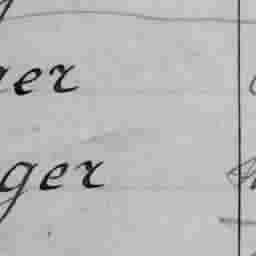 er
ger